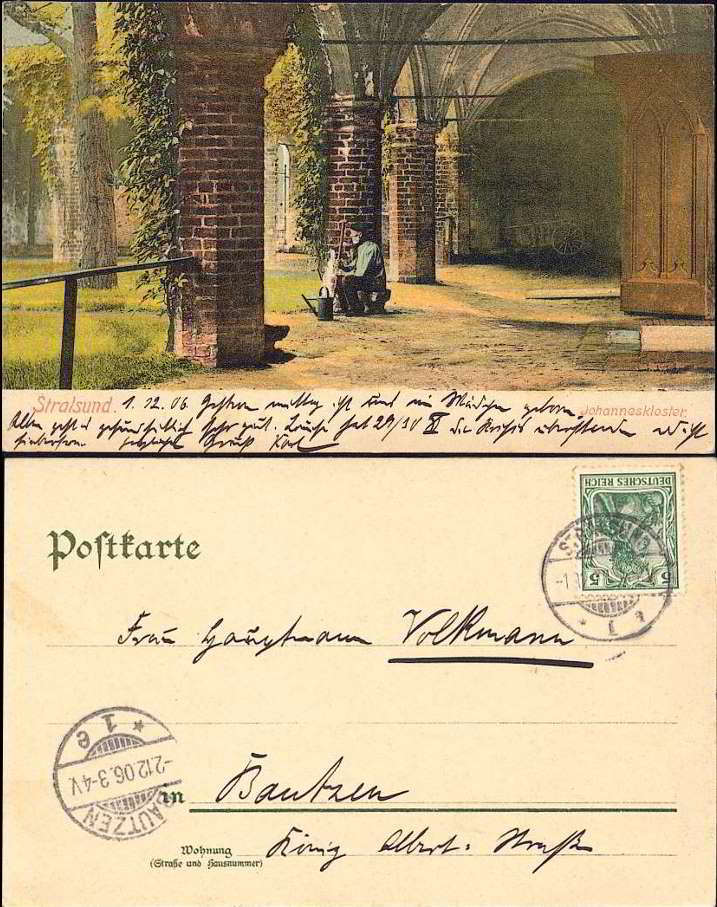 Stralsund. 1.12.06. Gestern mittag ist uns ein Mädchen geboren.
Johanneskloster.
Allen geht es gesundheitlich sehr gut. Louise hat 29/30 XI die Krisis überstanden
Gruß Karl
Postkarte
DEUTSCHES REICH
5 5
STRALSUND
Frau Hauptmann Volkmann
* 1 e
-2.12.06.3-4V.
BAUTZEN
in Bautzen
Wohnung König Albert-Straße
(Straße und Hausnummer)